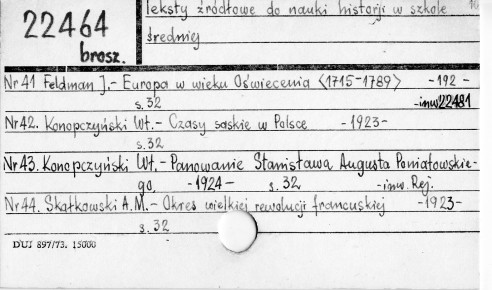 22464
brosz.
Teksty źródłowe do nauki historji w szkole
średniej
Nr 41 Feldman J.- Europa w wieku Oświecenia <1715-1789> -192 -
s.32 -inw 22481
Nr 42. Konopczyński Wł.- Czasy saskie w Polsce -1923-
s.32
Nr 43. Konopczyński Wł.- Panowanie Stanisława Augusta Poniatowskie-
go. -1924- s. 32 -inw. Rej.
Nr 44. Skałkowski A.M.- Okres wielkiej rewolucji francuskiej -1923-
s. 32
DUJ 897/73. 15000